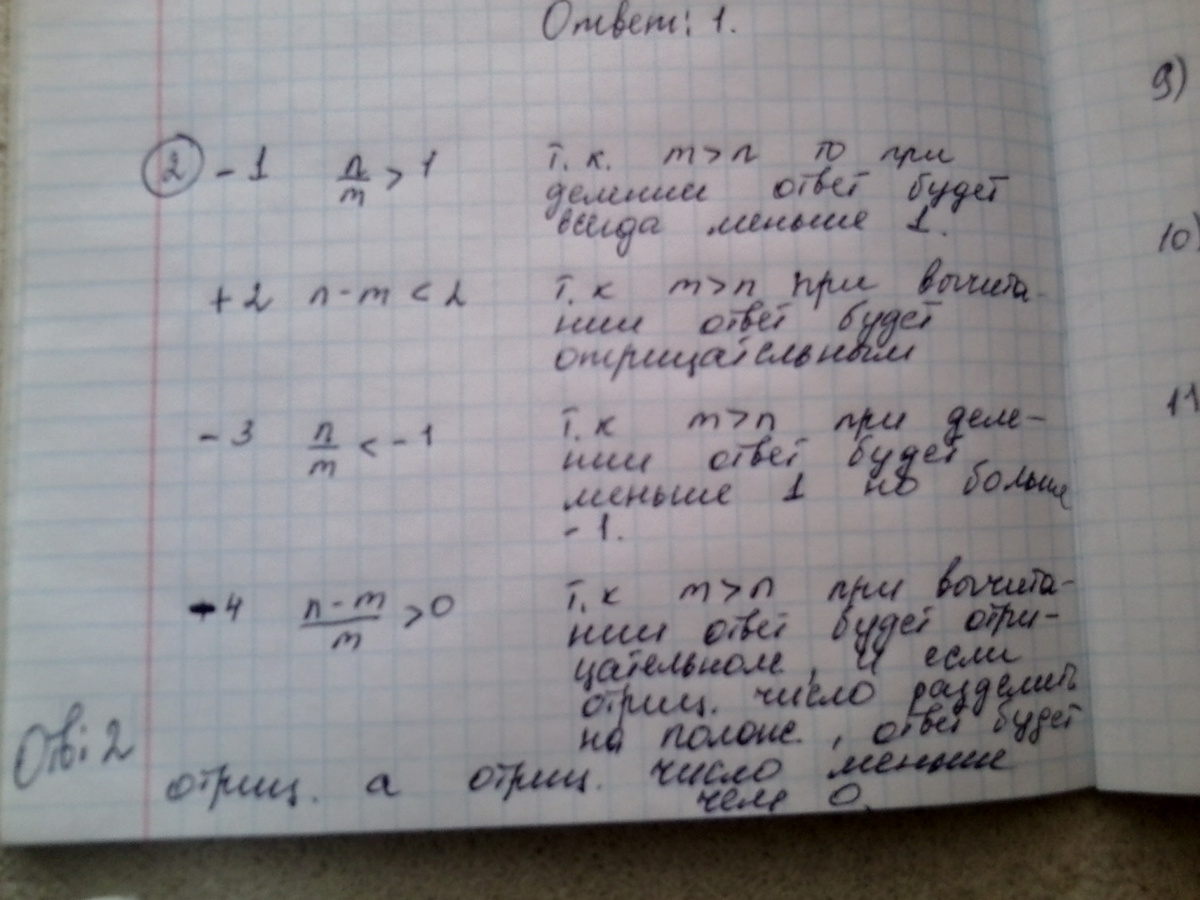 Ответ: 1.
9)
② - 1 n/m > 1 т.к. m>n то при
делении ответ будет
всегда меньше 1.
10)
+ 2 n-m < 2 т.к m>n при вычита-
нии ответ будет
отрицательным
11
- 3 n/m < -1 т.к m>n при деле-
нии ответ будет
меньше 1 но больше
-1.
- 4 (n-m)/m > 0 т.к m>n при вычита-
нии ответ будет отри-
цательном, и если
отриц. число разделить
на полож., ответ будет
отриц. а отриц. число меньше
чем 0.
Отв: 2